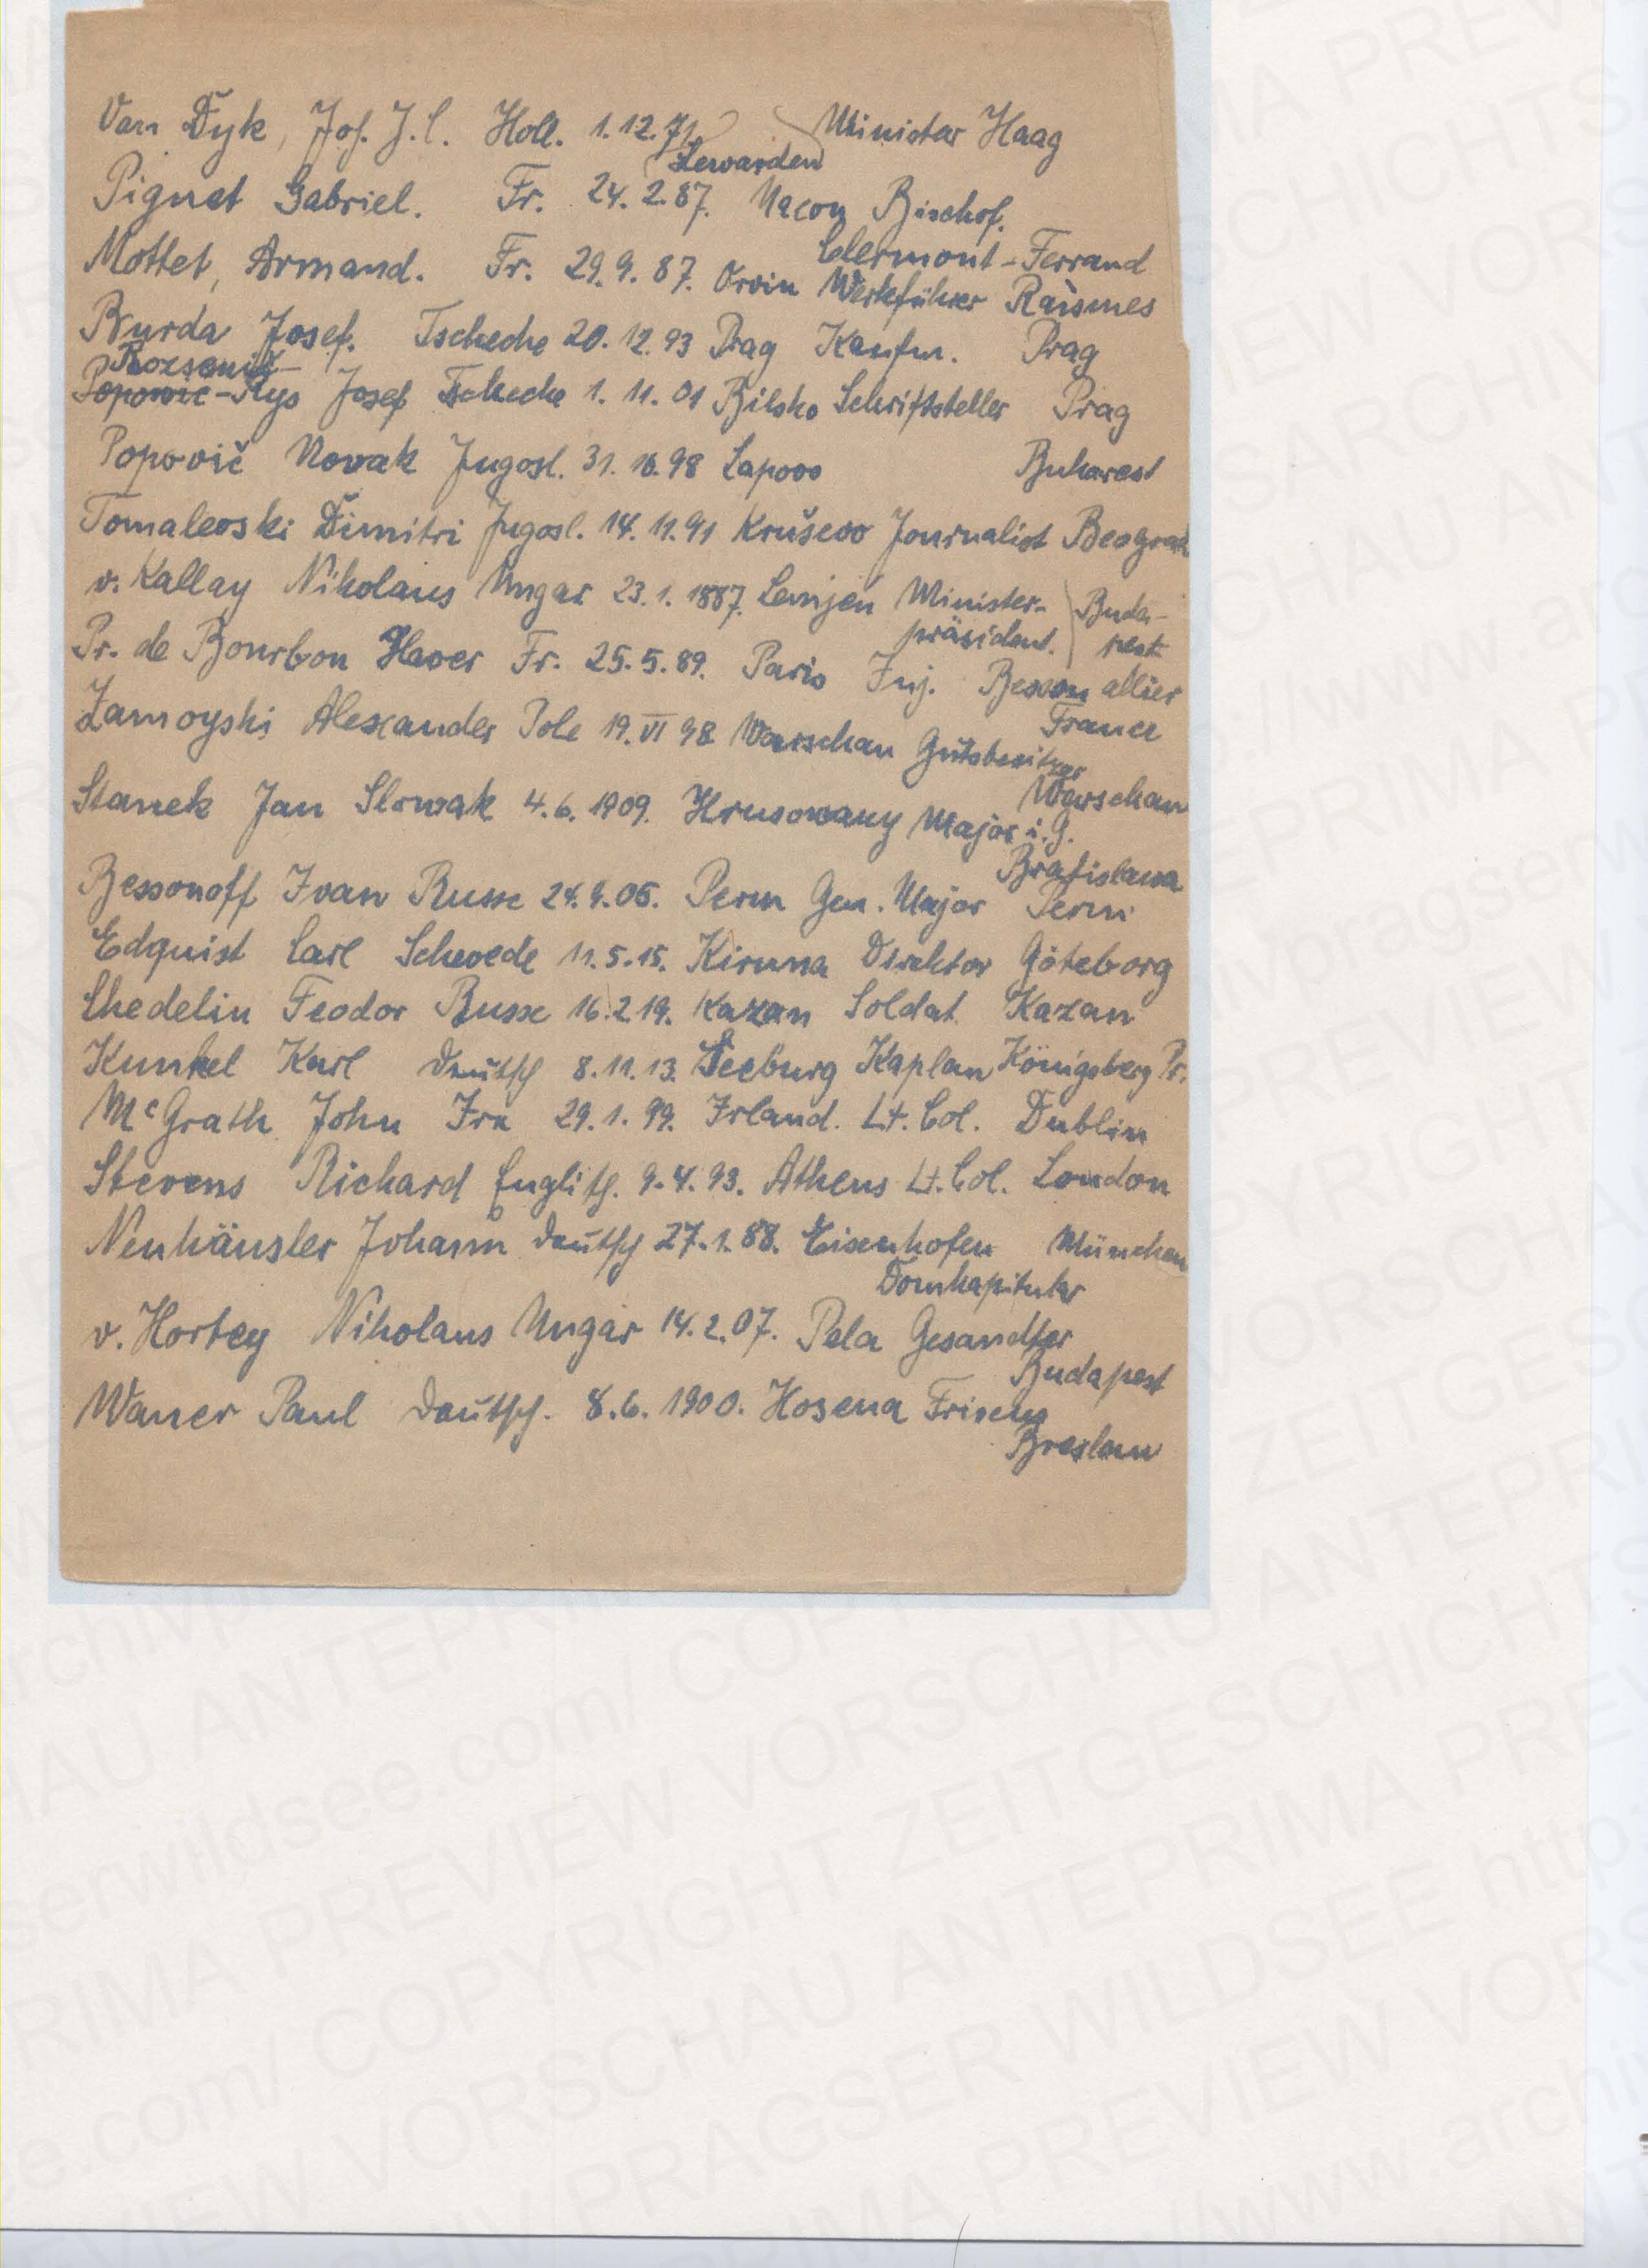 Van Dyk, Jos. J. C. Holl. 1.12.71. Minister Haag
Lewarden
Piguet Gabriel. Fr. 24.2.87. Macon Bischof.
Clermont-Ferrand
Mottet, Armand. Fr. 29.9.87. Orvin Werkführer Raismes
Burda Josef. Tscheche 20.12.93 Prag Kaufm. Prag
Popovič-Rys Josef Tscheche 1.11.01 Bilsko Schriftsteller Prag
Popovič Novak Jugosl. 31.10.98 Lapovo Bukarest
Tomalevski Dimitri Jugosl. 14.11.91 Kruševo Journalist Beograd
v. Kallay Nikolaus Ungar 23.1.1887. Minister- Buda-
präsident. pest
Pr. de Bourbon Xavier Fr. 25.5.89. Paris Inj. Besson allier
France
Zamoyski Alexander Pole 19.VI 98 Warschau Gutsbesitzer
Warschau
Stanek Jan Slowak 4.6.1909. Hrusowany Major i.G.
Bratislawa
Bessonoff Ivan Russe 24.9.05. Perm Gen. Major Perm
Edquist Carl Schwede 11.5.15. Kiruna Direktor Göteborg
Chedelin Feodor Russe 16.2.19. Kazan Soldat Kazan
Kunkel Karl Deutsch 8.11.13. Seeburg Kaplan Königsberg Pr.
McGrath John Ire 29.1.99. Irland. Lt. Col. Dublin
Stevens Richard Englisch. 9.4.93. Athens Lt. Col. London
Neuhäusler Johann Deutsch 27.1.88. Eisenhofen München
Domkapitular
v. Hortey Nikolaus Ungar 14.2.07. Pola Gesandter
Budapest
Wauer Paul Deutsch. 8.6.1900. Hosena Friseur
Breslau